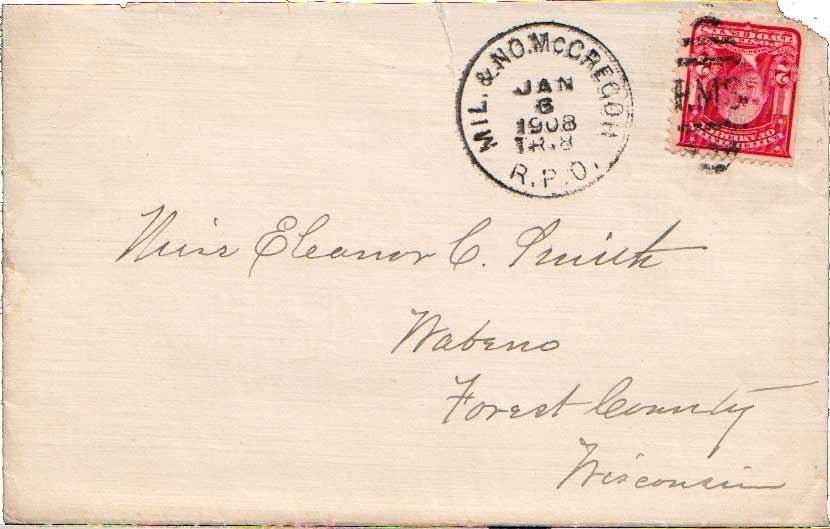 MIL. & NO. McGREGOR
JAN
6
1908
TR.8
R.P.O.
RMS
TWO CENTS
2 2
Miss Eleanor C. Smith
Wabeno
Forest County
Wisconsin